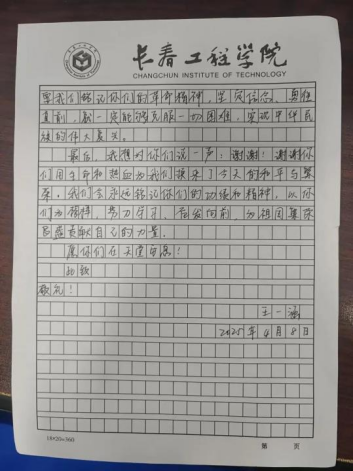 长春工程学院
CHANGCHUN INSTITUTE OF TECHNOLOGY
要我们铭记你们的革命精神,坚定信念、勇往
直前,就一定能够克服一切困难,实现中华民
族的伟大复兴。
最后,我想对你们说一声:谢谢!谢谢你
们用生命和热血为我们换来了今天的和平与繁
荣。我们会永远铭记你们的功绩和精神,以你
们为榜样,努力学习,奋发向前,为祖国繁荣
昌盛贡献自己的力量。
愿你们在天堂安息!
此致
敬礼!
王一涵
2025年4月8日
18×20=360
第 页